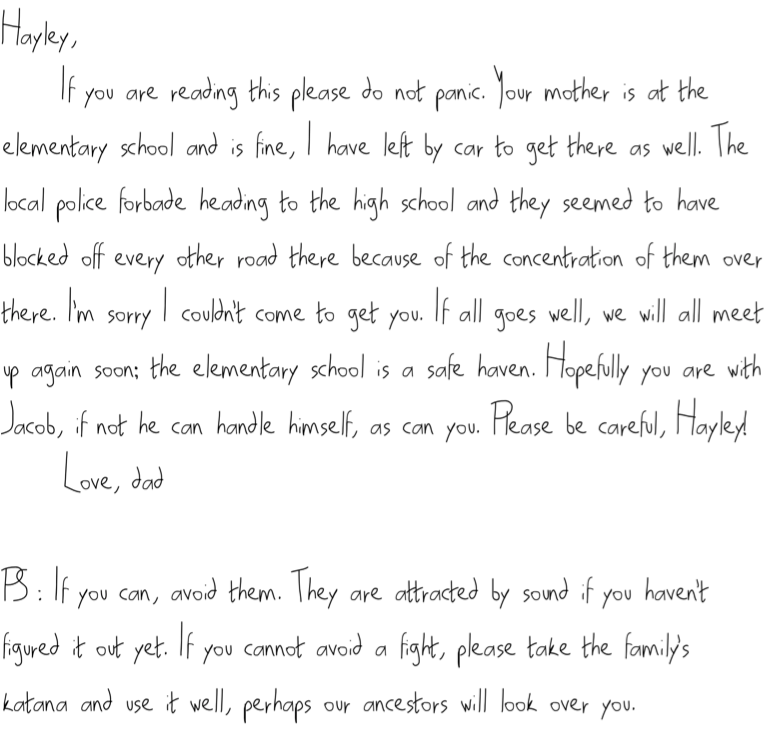 Hayley,
If you are reading this please do not panic. Your mother is at the
elementary school and is fine, I have left by car to get there as well. The
local police forbade heading to the high school and they seemed to have
blocked off every other road there because of the concentration of them over
there. I'm sorry I couldn't come to get you. If all goes well, we will all meet
up again soon; the elementary school is a safe haven. Hopefully you are with
Jacob, if not he can handle himself, as can you. Please be careful, Hayley!
Love, dad
PS: If you can, avoid them. They are attracted by sound if you haven't
figured it out yet. If you cannot avoid a fight, please take the family's
katana and use it well, perhaps our ancestors will look over you.